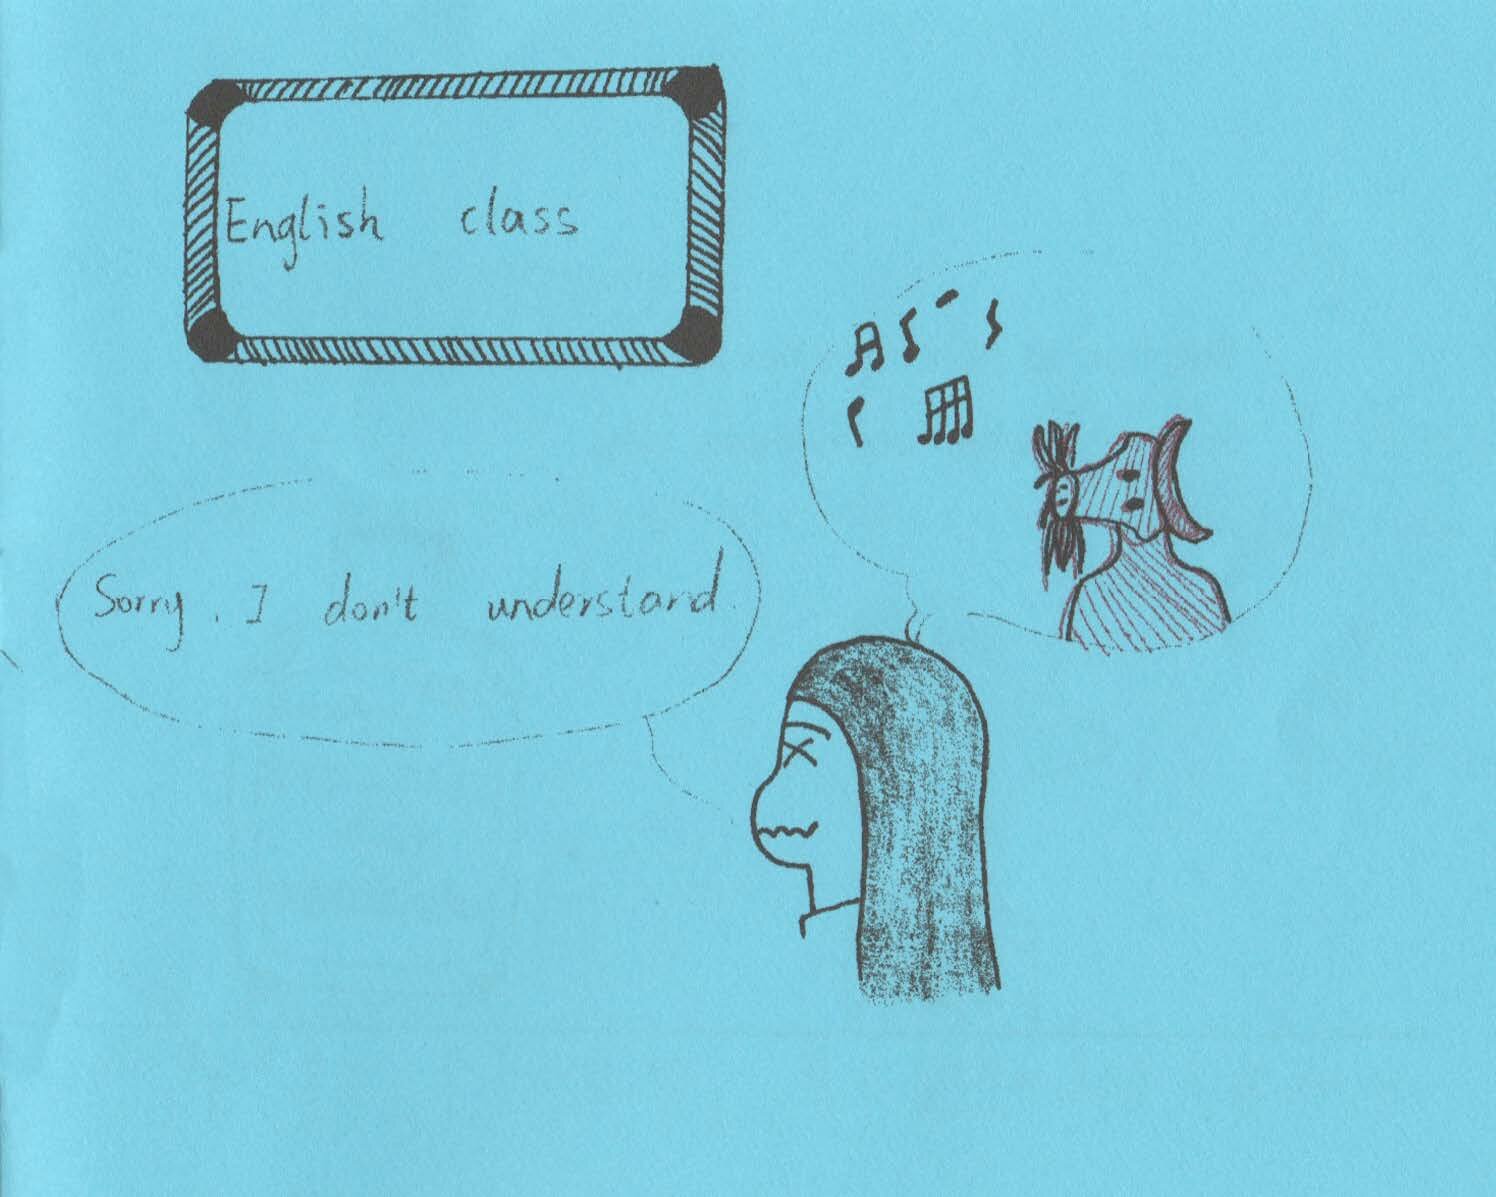 English class
Sorry. I don't understand.